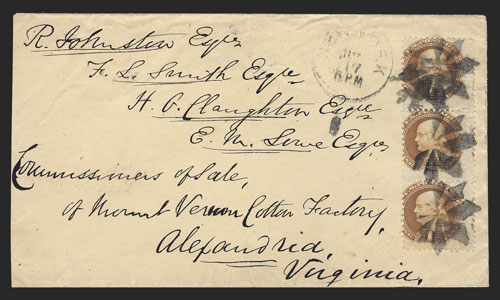 R. Johnston Esqre
F. L. Smith Esqre
H. O. Claughton Esqre
E. M. Lowe Esqre
Commissioners of Sale,
of Mount Vernon Cotton Factory,
Alexandria,
Virginia.
17
6 PM